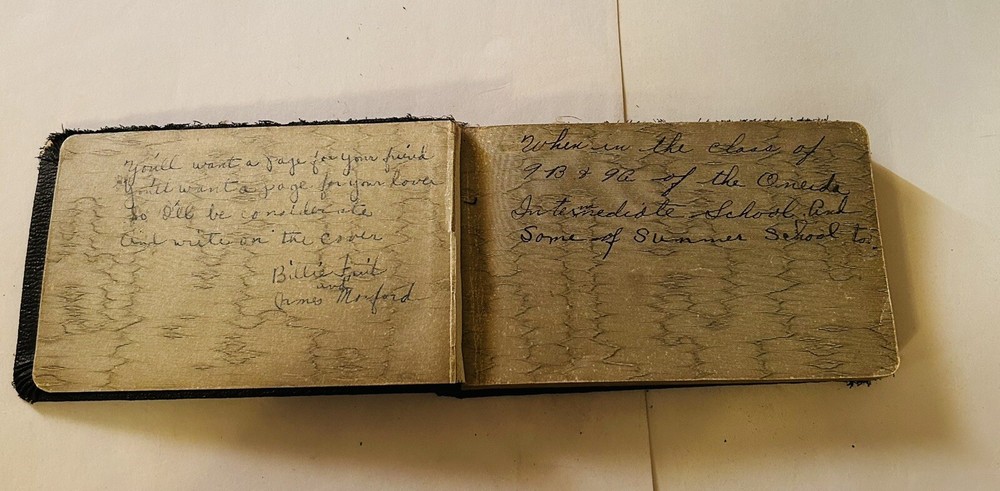 You'll want a page for your friend
You'll want a page for your lover
So I'll be considerate
And write on the cover
Billie
and
James Morford
When in the class of
9B & 9A of the Oneida
Intermediate School. And
Some of Summer School too